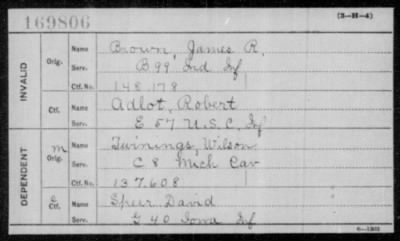 169806
(3-H-4)
INVALID
Orig.
Name Brown, James R.
Serv. B 99 Ind Inf
Ctf. No. 148.178
Ctf.
Name Adlot, Robert
Serv. E 57 U.S.C. Inf
DEPENDENT
M
Orig.
Name Twinings, Wilson
Serv. C 8 Mich Cav
Ctf. No. 137.608
Ctf.
Name Speer, David
Serv. G 40 Iowa Inf